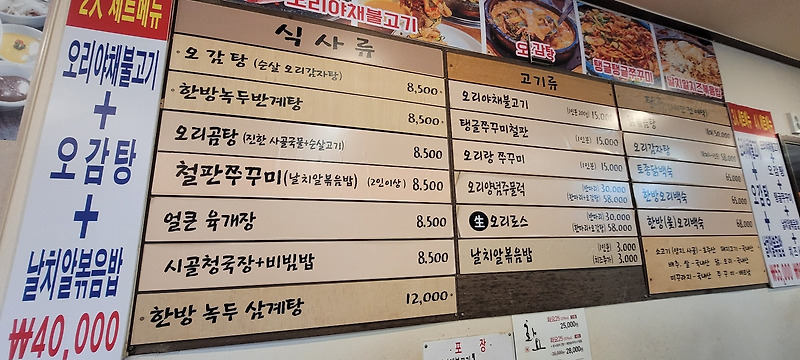 2人 세트메뉴
오리야채불고기
+
오감탕
+
날치알볶음밥
₩40,000
오리야채불고기
오감탕
탱글탱글쭈꾸미
날치알치즈볶음밥
식사류
오감탕 (순살 오리감자탕) 8,500
한방녹두반계탕 8,500
오리곰탕 (진한 사골국물+순살고기) 8,500
철판쭈꾸미 (날치알볶음밥) (2인이상) 8,500
얼큰 육개장 8,500
시골청국장+비빔밥 8,500
한방 녹두 삼계탕 12,000
고기류
오리야채불고기 (1인분 200g) 15,000
탱글쭈꾸미철판 (1인분) 15,000
오리랑 쭈꾸미 (1인분) 15,000
오리양념주물럭 (반마리) 30,000
(한마리+오감탕) 58,000
生 오리로스 (반마리) 30,000
(한마리+오감탕) 58,000
날치알볶음밥 (1인분) 3,000
(치즈추가) 3,000
50,000
오리감자탕 58,000
토종닭백숙 65,000
한방오리백숙 65,000
한방(옻)오리백숙 68,000
포장
화요
화요25
25,000원
28,000원